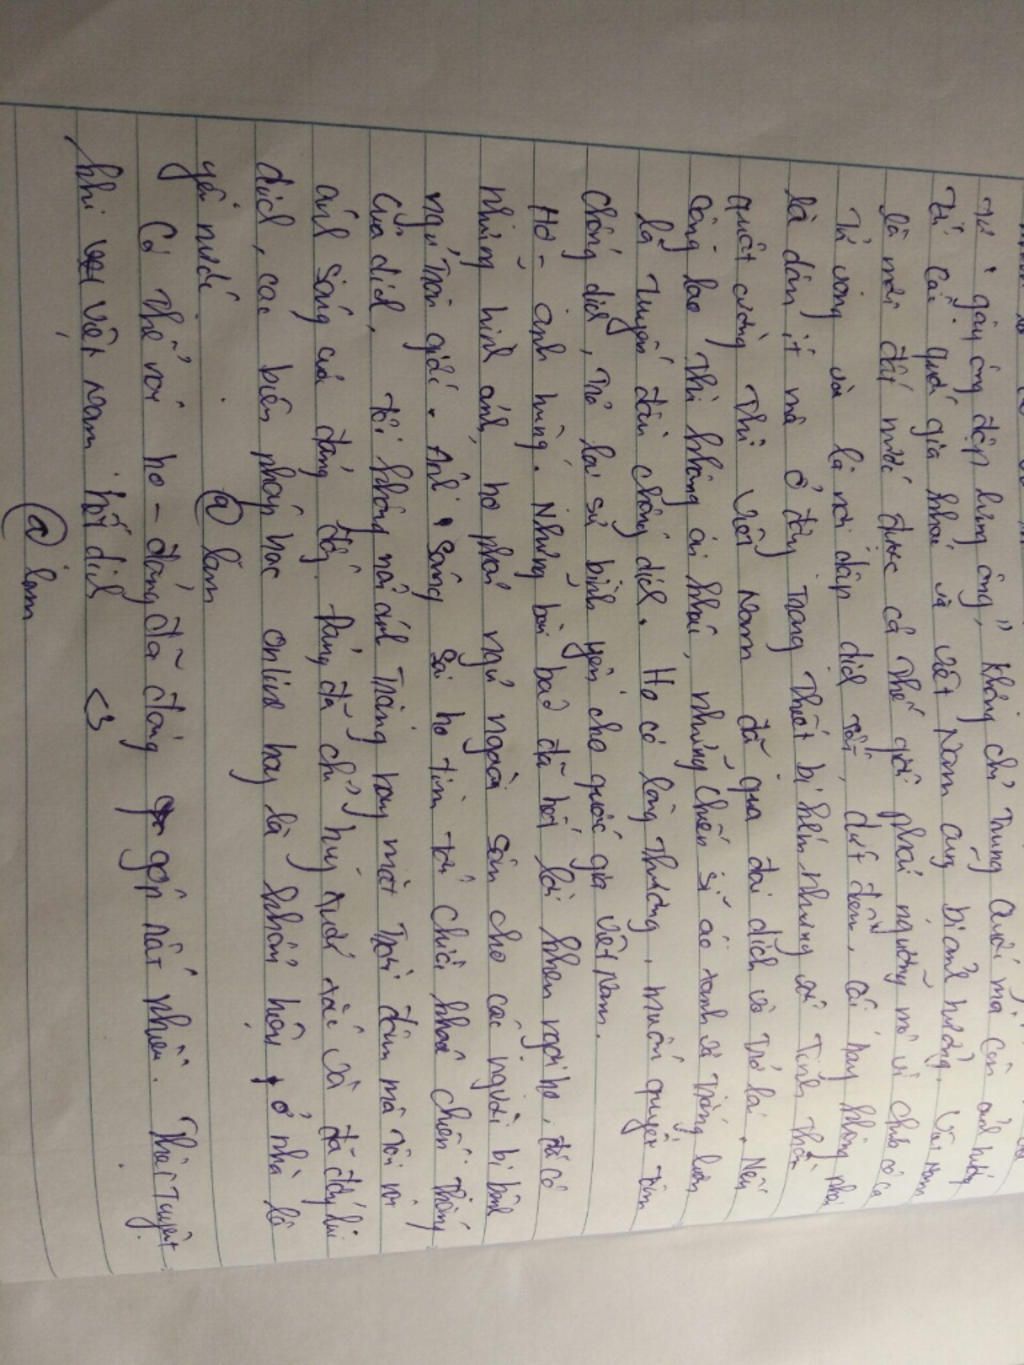 gậy ông đập lưng ông", không chỉ Trung Quốc mà còn ảnh hưởng
tới các quốc gia khác và Việt Nam cũng bị ảnh hưởng. Việt Nam
là một đất nước được cả thế giới phải ngưỡng mộ vì chưa có ca
tử vong và là nơi dập dịch tốt, dứt điểm, có hay không phải
là dân ít mà ở đây trang thiết bị kém nhưng với tinh thần
quật cường thì Việt Nam đã qua đại dịch và trở lại. Nếu
công lao thì không ai khác, những chiến sĩ áo xanh và trắng luôn
là tuyến đầu chống dịch. Họ có lòng thương, muốn quyết tâm
chống dịch, trở lại sự bình yên cho quốc gia Việt Nam.
Họ - anh hùng. Những bài báo đã hết lời khen ngợi họ, đã có
những hình ảnh họ phải ngủ ngoài sân cho các người bị bệnh
ngủ trên giới. Ánh sáng họ tìm tới chiếc khoá chiến thắng
của dịch, tôi không nói ánh trăng hay mặt trời đâu mà tôi nói
ánh sáng của đảng đấy. Đảng đã chỉ huy xuất sắc và đã đẩy lùi
dịch, các biện pháp học online hay là khẩu hiệu, ở nhà là
yêu nước.
@ lam
Có thể nói họ - đảng đã đóng góp rất nhiều. Thật tuyệt
khi Việt Nam hết dịch <3
@ lam